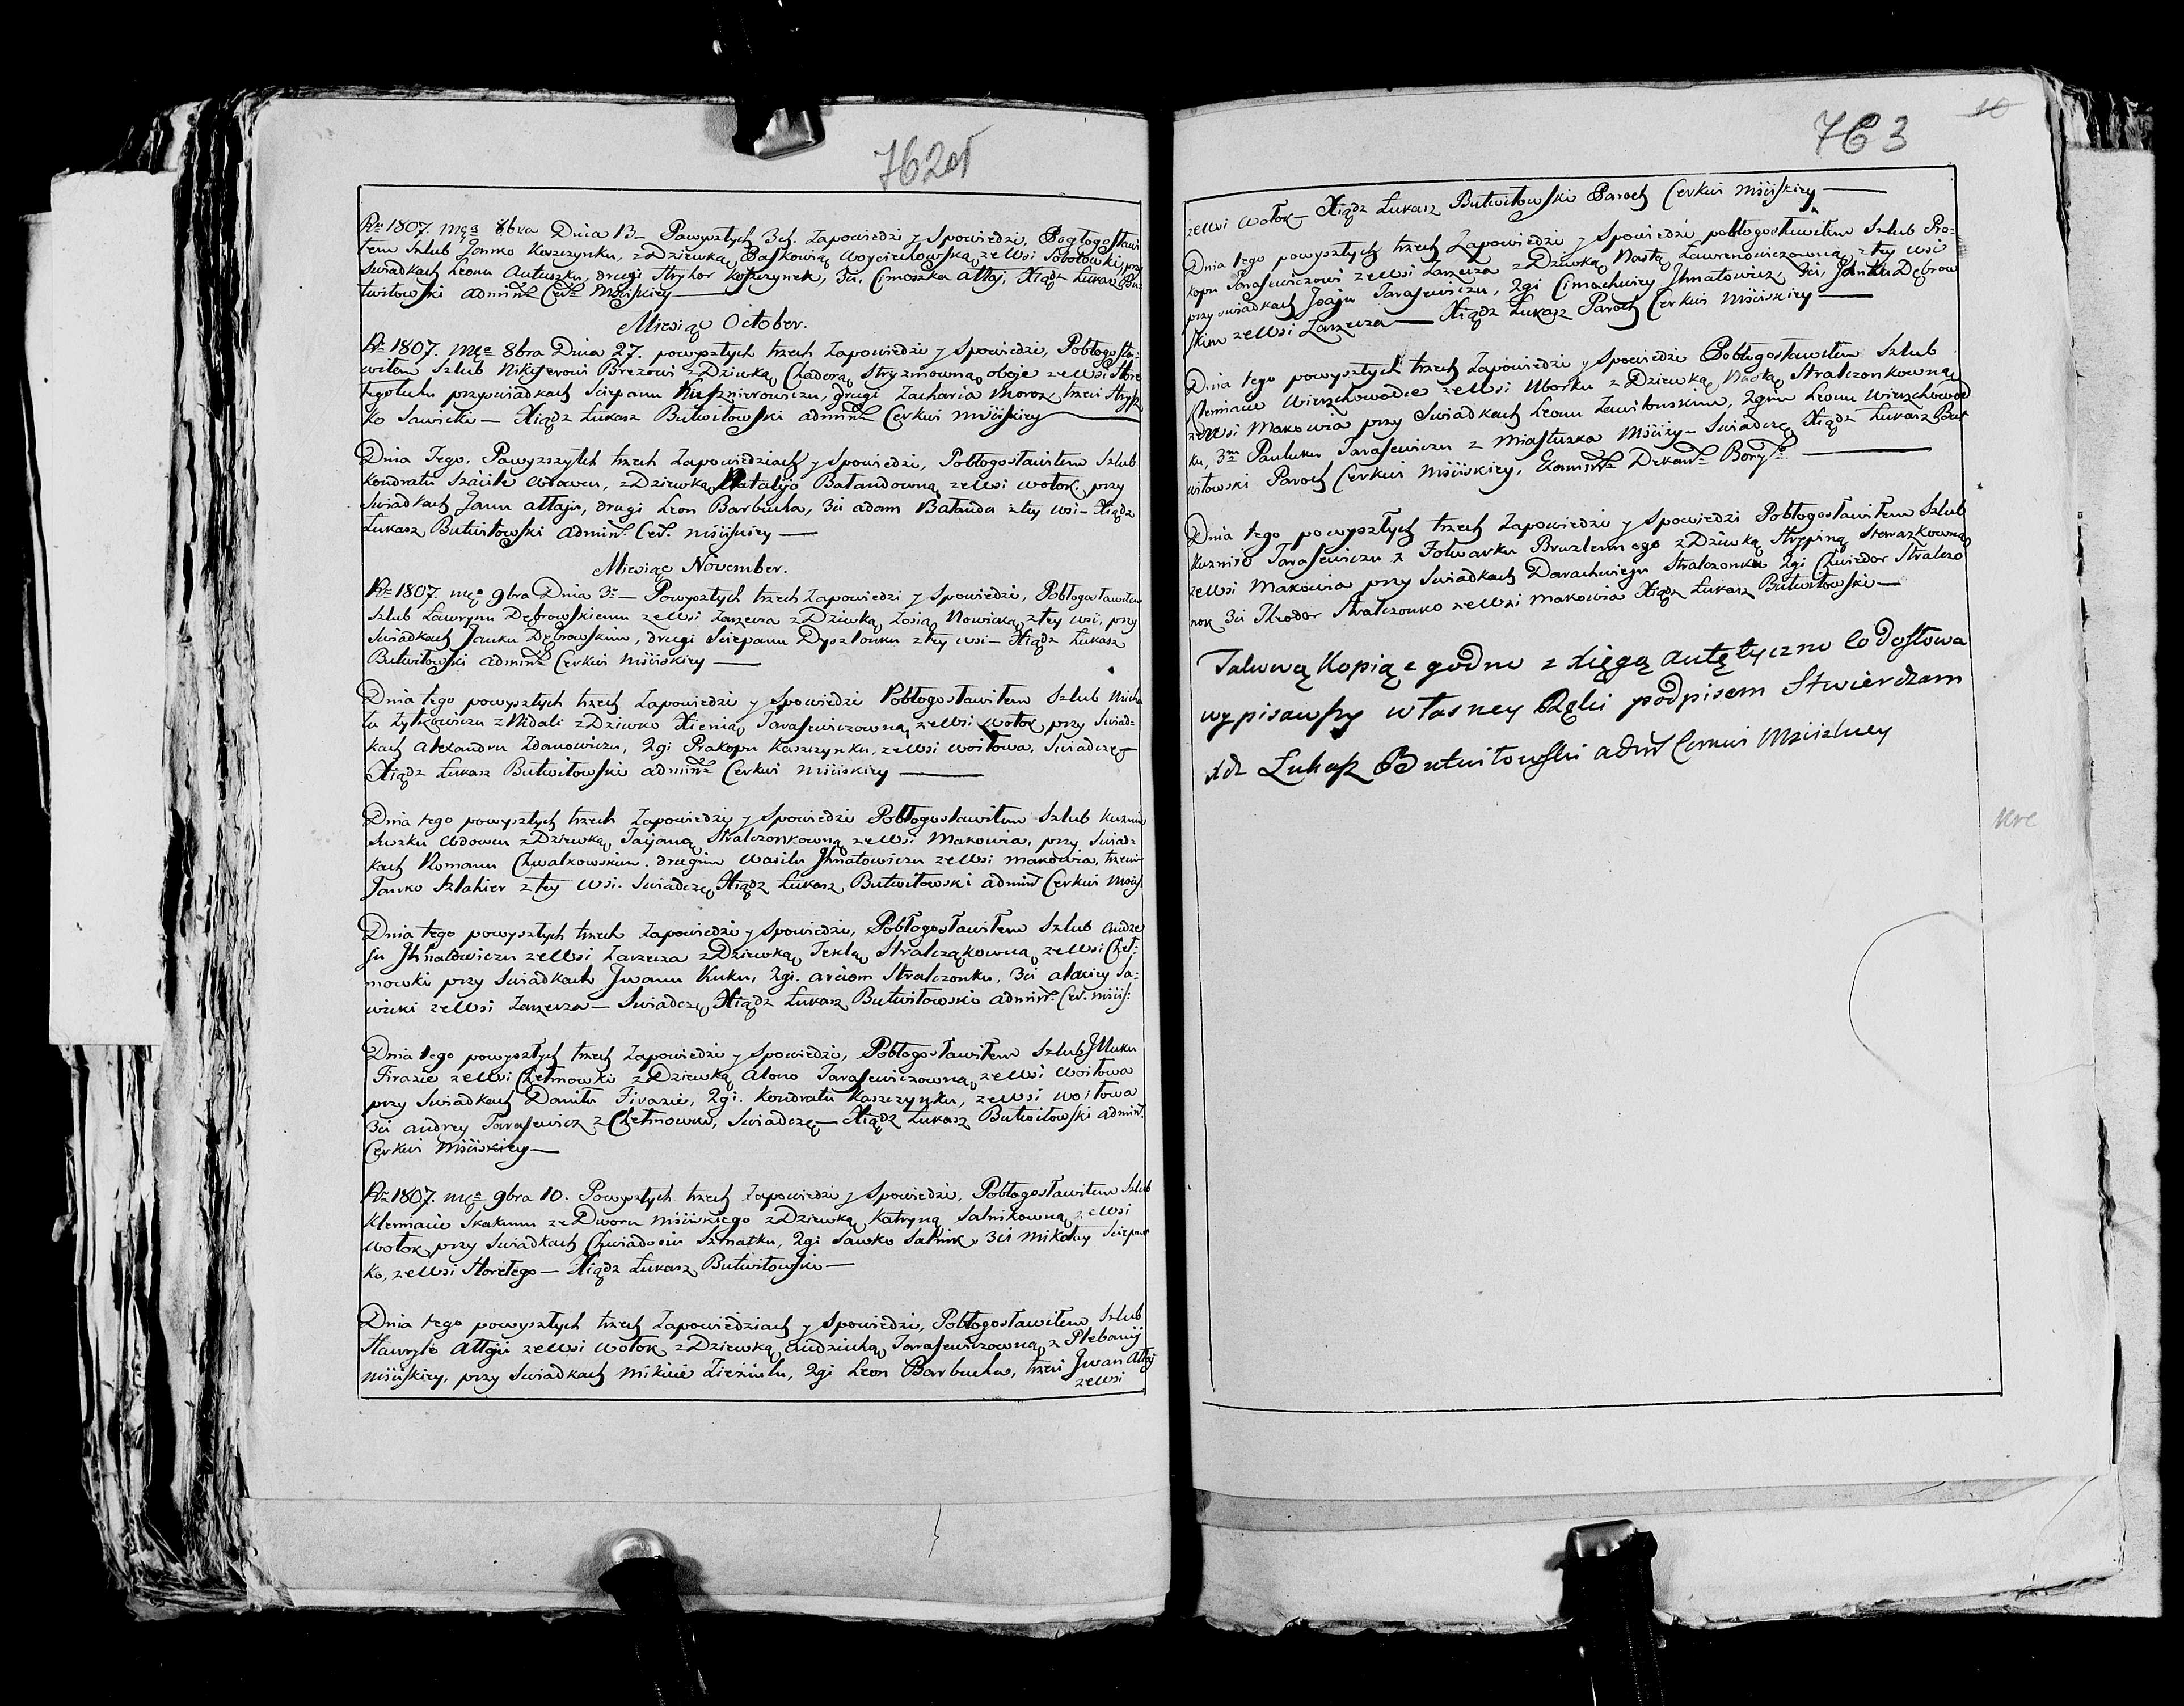 762об
Rku 1807. mca 7bra Dnia 13 – Powyszłych 3ch. Zapowiedzi y Spowiedzi, Pogłogosławi
łem Szlub Janko Kaszczynku, z Dziewką Paskowią Woyciechowską ze Wsi Sobotowki, przy
Swiadkach Leonu Autuszku, drugi Hryhor Koszczynek, 3ci. Cimoszka Ałtaj, Xiądz Łukasz Bu
twiłowski Admin. Cer. Mściskiey
Miesiąc October.
Rku 1807. mca 8bra Dnia 27. powyszłych trzech Zapowiedzi y Spowiedzi, Pobłogosła-
wiłem Szlub Nikiferowi Brezowi z Dziwką Chadorą Stryzniowną oboje ze Wsi Hore
przy swiadkach Sciepanu Kusznierowiczu, drugi Zacharia Moroz trzeci
ko Sawicki – Xiądz Łukasz Butwiłowski admin. Cerkwi Mściskiey
Dnia Tego, Powyzszych trzech Zapowiedziach y Spowiedzi, Pobłogosławiłem Szlub
Kondratu Wdowcu, z Dziewką Natalijo Bałandowną ze Wsi Wołok. przy
Swiadkach Janu Ałtaju, drugi Leon Barbucha, 3ci Adam Bałanda z tey wsi – Xiądz
Łukasz Butwiłowski Admin. Cer. Mściskiey
Miesiąc November.
Rku 1807. mca 9bra Dnia 3 – Powyszłych trzech Zapowiedzi y Spowiedzi, Pobłogosławiłem
Szlub Ławrynu Dębrowskiemu ze Wsi Zarzecza z Dziwką Zosią Nowicką z tey wsi, przy
Swiadkach Janku Dębrowskim, drugi Sciepanu Dyszlonku z tey wsi – Xiądz Łukasz
Butwiłowski Admin. Cerkwi Mściskiey
Dnia tego powyszłych trzech Zapowiedzi y Spowiedzi Pobłogosławiłem Szlub Micha
łu Zytkowiczu z Nidali z Dziwko Xienią Tarasewiczowną ze Wsi Wołok przy Swiad-
kach Alexandru Zdanowiczu, 2gi Prakopu Kaszczynku, ze Wsi Woitowa, Swiadczę
Xiądz Łukasz Butwiłowski Admin. Cerkwi Mściskiey
Dnia tego powyszłych trzech Zapowiedzi y Spowiedzi Pobłogosławiłem Szlub Kuzmie
Suszku Wdowcu z Dziewką Tacjaną Stralczonkowną ze Wsi Makowia, przy Swiad-
kach Romanu Chwalkowskim. drugim Wasilu Ihnatowiczu ze Wsi Makowia, trzeci
Janko Szlahier z tey Wsi. Swiadczę Xiądz Łukasz Butwiłowski Admin. Cerkwi Mścis.
Dnia tego powyszłych trzech Zapowiedzi y Spowiedzi, Pobłogosławiłem Szlub Andre
ju Ihnatowiczu ze Wsi Zarzecza z Dziewką Teklą Stralcząkowną ze Wsi Cheł-
mowki przy Swiadkach Jwanu Kuku, 2gi. Arciom Stralczonku, 3ci Sa-
wicki ze Wsi Zarzecza – Swiadczę Xiądz Łukasz Butwiłowski Admin. Cer. Mścis.
Dnia tego powyszłych trzech Zapowiedzi y Spowiedzi, Pobłogosławiłem Szlub
Firazie ze Wsi Chełmowki z Dziewką Alono Tarasewiczowną ze Wsi Woitowa
przy Swiadkach Daniłu Firazie, 2gi. Kondratu Kaszczynku, ze Wsi Woitowa
3ci Andrey Tarasewicz z Chełmowki, Swiadczę – Xiądz Łukasz Butwiłowski Admin.
Cerkwi Mściskiey –
Rku 1807. mca 9bra 10. Powyszłych trzech Zapowiedzi y Spowiedzi, Pobłogosławiłem Szlub
Klemacie Skakunu ze Dworu Mściskiego z Dziewką Katryną Salnikowną ze Wsi
Wołok przy Swiadkach Chwiadosiu Szmatku, 2gi Sawko Salnik, 3ci Mikołay Sciepan
ko, ze Wsi Horełego – Xiądz Łukasz Butwiłowski –
Dnia tego powyszłych trzech Zapowiedziach y Spowiedzi, Pobłogosławiłem Szlub
Hawryło Ałtaju ze Wsi Wołok z Dziewką Audziuhą Tarasewiczowną z Plebanij
Mściskiey, przy Swiadkach Mikicie Zieziulu, 2gi Leon Barbucha, trzeci Jwan Ałtaj
ze Wsi
10
763
ze Wsi Wołok – Xiądz Łukasz Butwiłowski Paroch Cerkwi Mściskiey
Dnia tego powyszłych trzech Zapowiedzi y Spowiedzi pobłogosławiłem Szlub Pro-
kopu Tarasewiczowi ze Wsi Zarzecza z Dziwką Nastą Ławrenowiczowną z tey wsi
przy swiadkach Tarasewiczu, 2gi Cimachwiey Ihnatowicz, 3ci, Janku Dębrow
skim ze Wsi Zarzecza – Xiądz Łukasz Paroch Cerkwi Mściskiey
Dnia tego powyszłych trzech Zapowiedzi y Spowiedzi Pobłogosławiłem Szlub
Klemiacie Wierzchowodce ze Wsi Uborku z Dziewką Nastą Stralczonkowną
ze Wsi Makowia przy Swiadkach Leonu Zawilonskim, 2gim Leonu Wierzchowod
ku, 3m Pauluku Tarasewiczu z Miasteczka Mściży – Swiadczę Xiądz Łukasz But
wiłowski Paroch Cerkwi Mściskiey,
Dnia tego powyszłych trzech Zapowiedzi y Spowiedzi Pobłogosławiłem Szlub
Kuzmiro Tarasewiczu z Folwarku z Dziwką
ze Wsi Makowia przy Swiadkach Darachwieju Stralczonku 2gi Chwiedor Stralczo
nok 3ci Theodor Stralczonko ze Wsi Makowia Xiądz Łukasz Butwiłowski –
Takową Kopią zgodno z Xięgą Autętyczno Co do słowa
wypisawszy własney Ręki podpisem Stwierdzam
Xdz Łukasz Butwiłowski Adm Cerkwi Mścizkiey